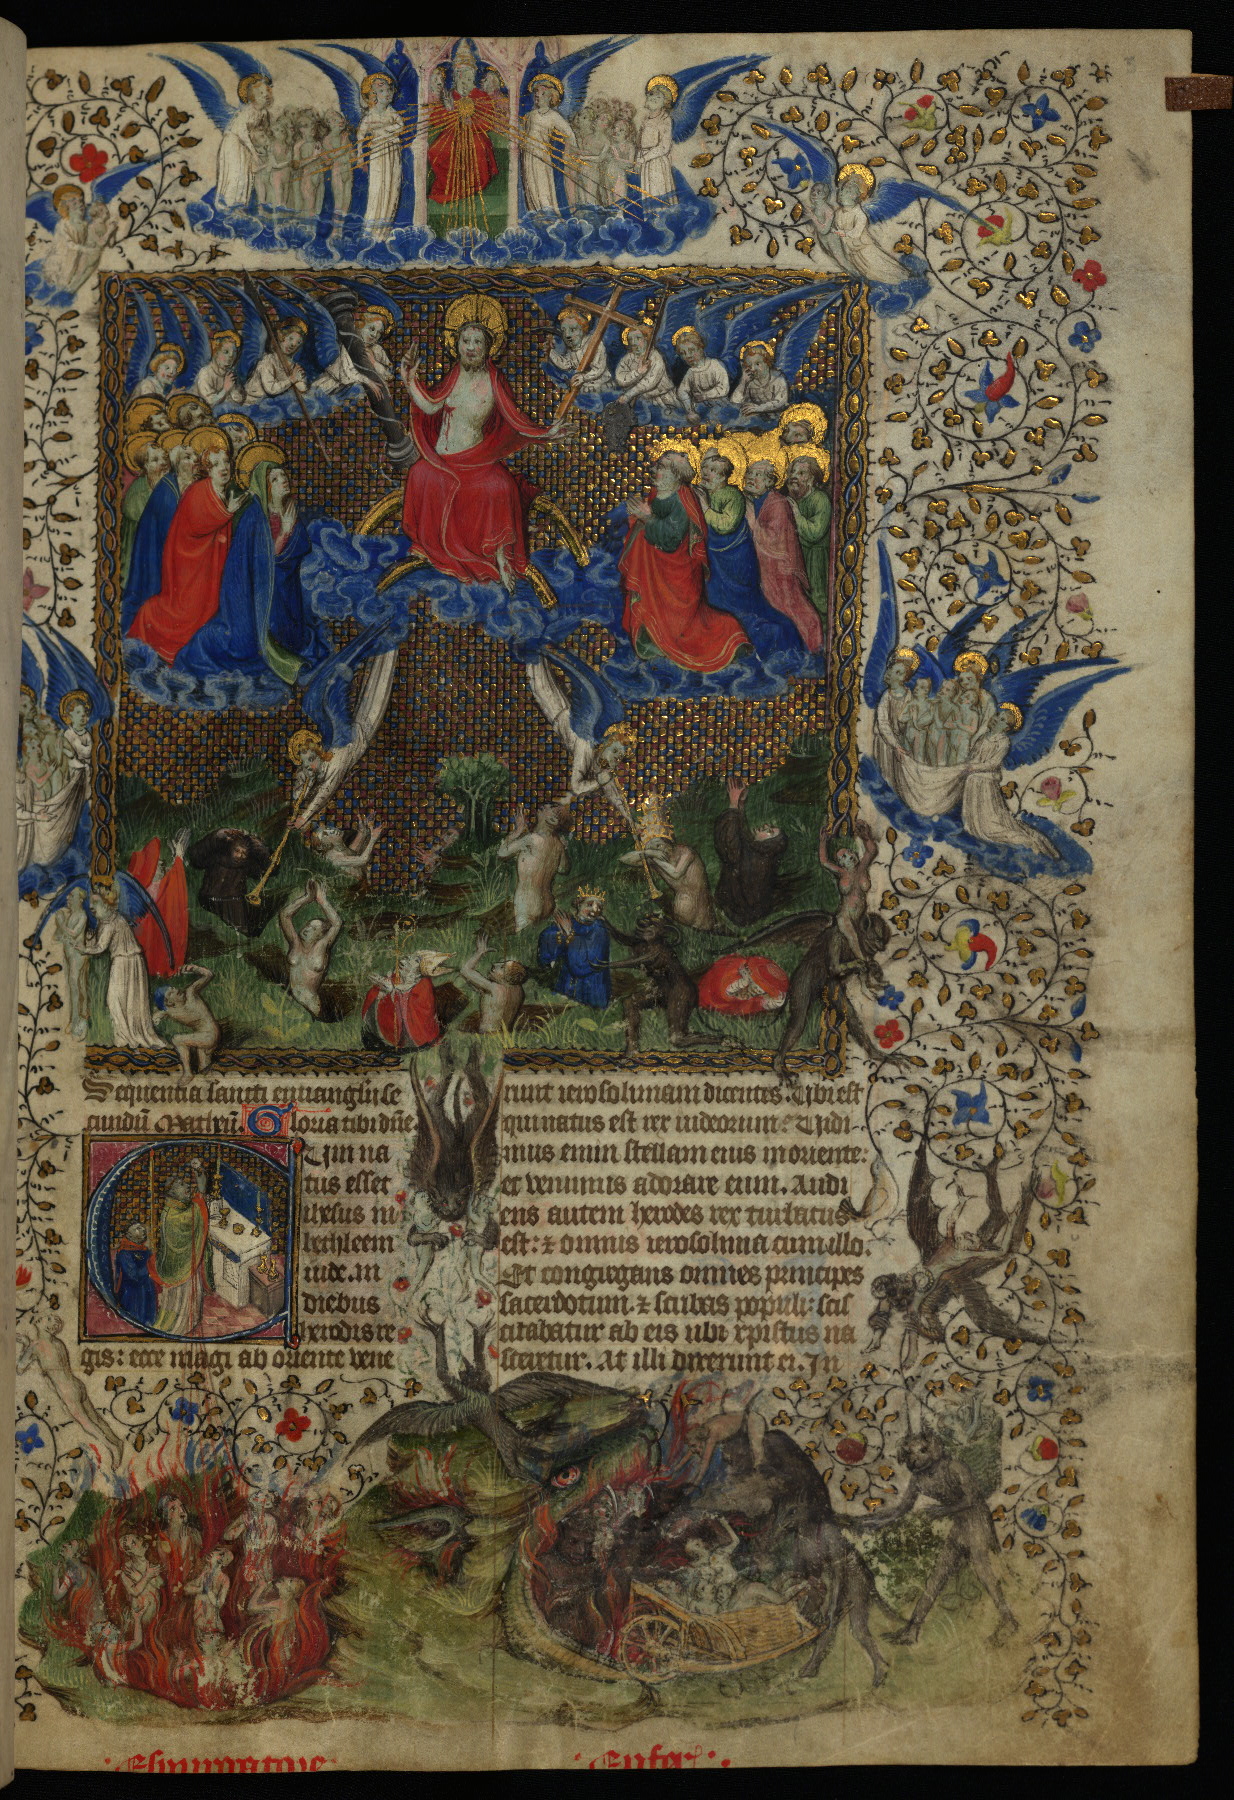 Sequentia sancti euuangl'ii se
cundū Matheū. Gloria tibi dn̄e.
Cum na
tus esset
ihesus in
bethleem
iude. in
diebus
herodis re
gis: ecce magi ab oriente vene
runt ierosolimam dicentes: Ubi est
qui natus est rex iudeorum? Vidi
mus enim stellam eius in oriente:
et venimus adorare eum. Audi
ens autem herodes rex turbatus
est: ⁊ omnis ierosolima cum illo.
Et congregans omnes principes
sacerdotum. ⁊ scribas populi: scis
citabatur ab eis ubi xpistus na
sceretur. At illi dixerunt ei. In